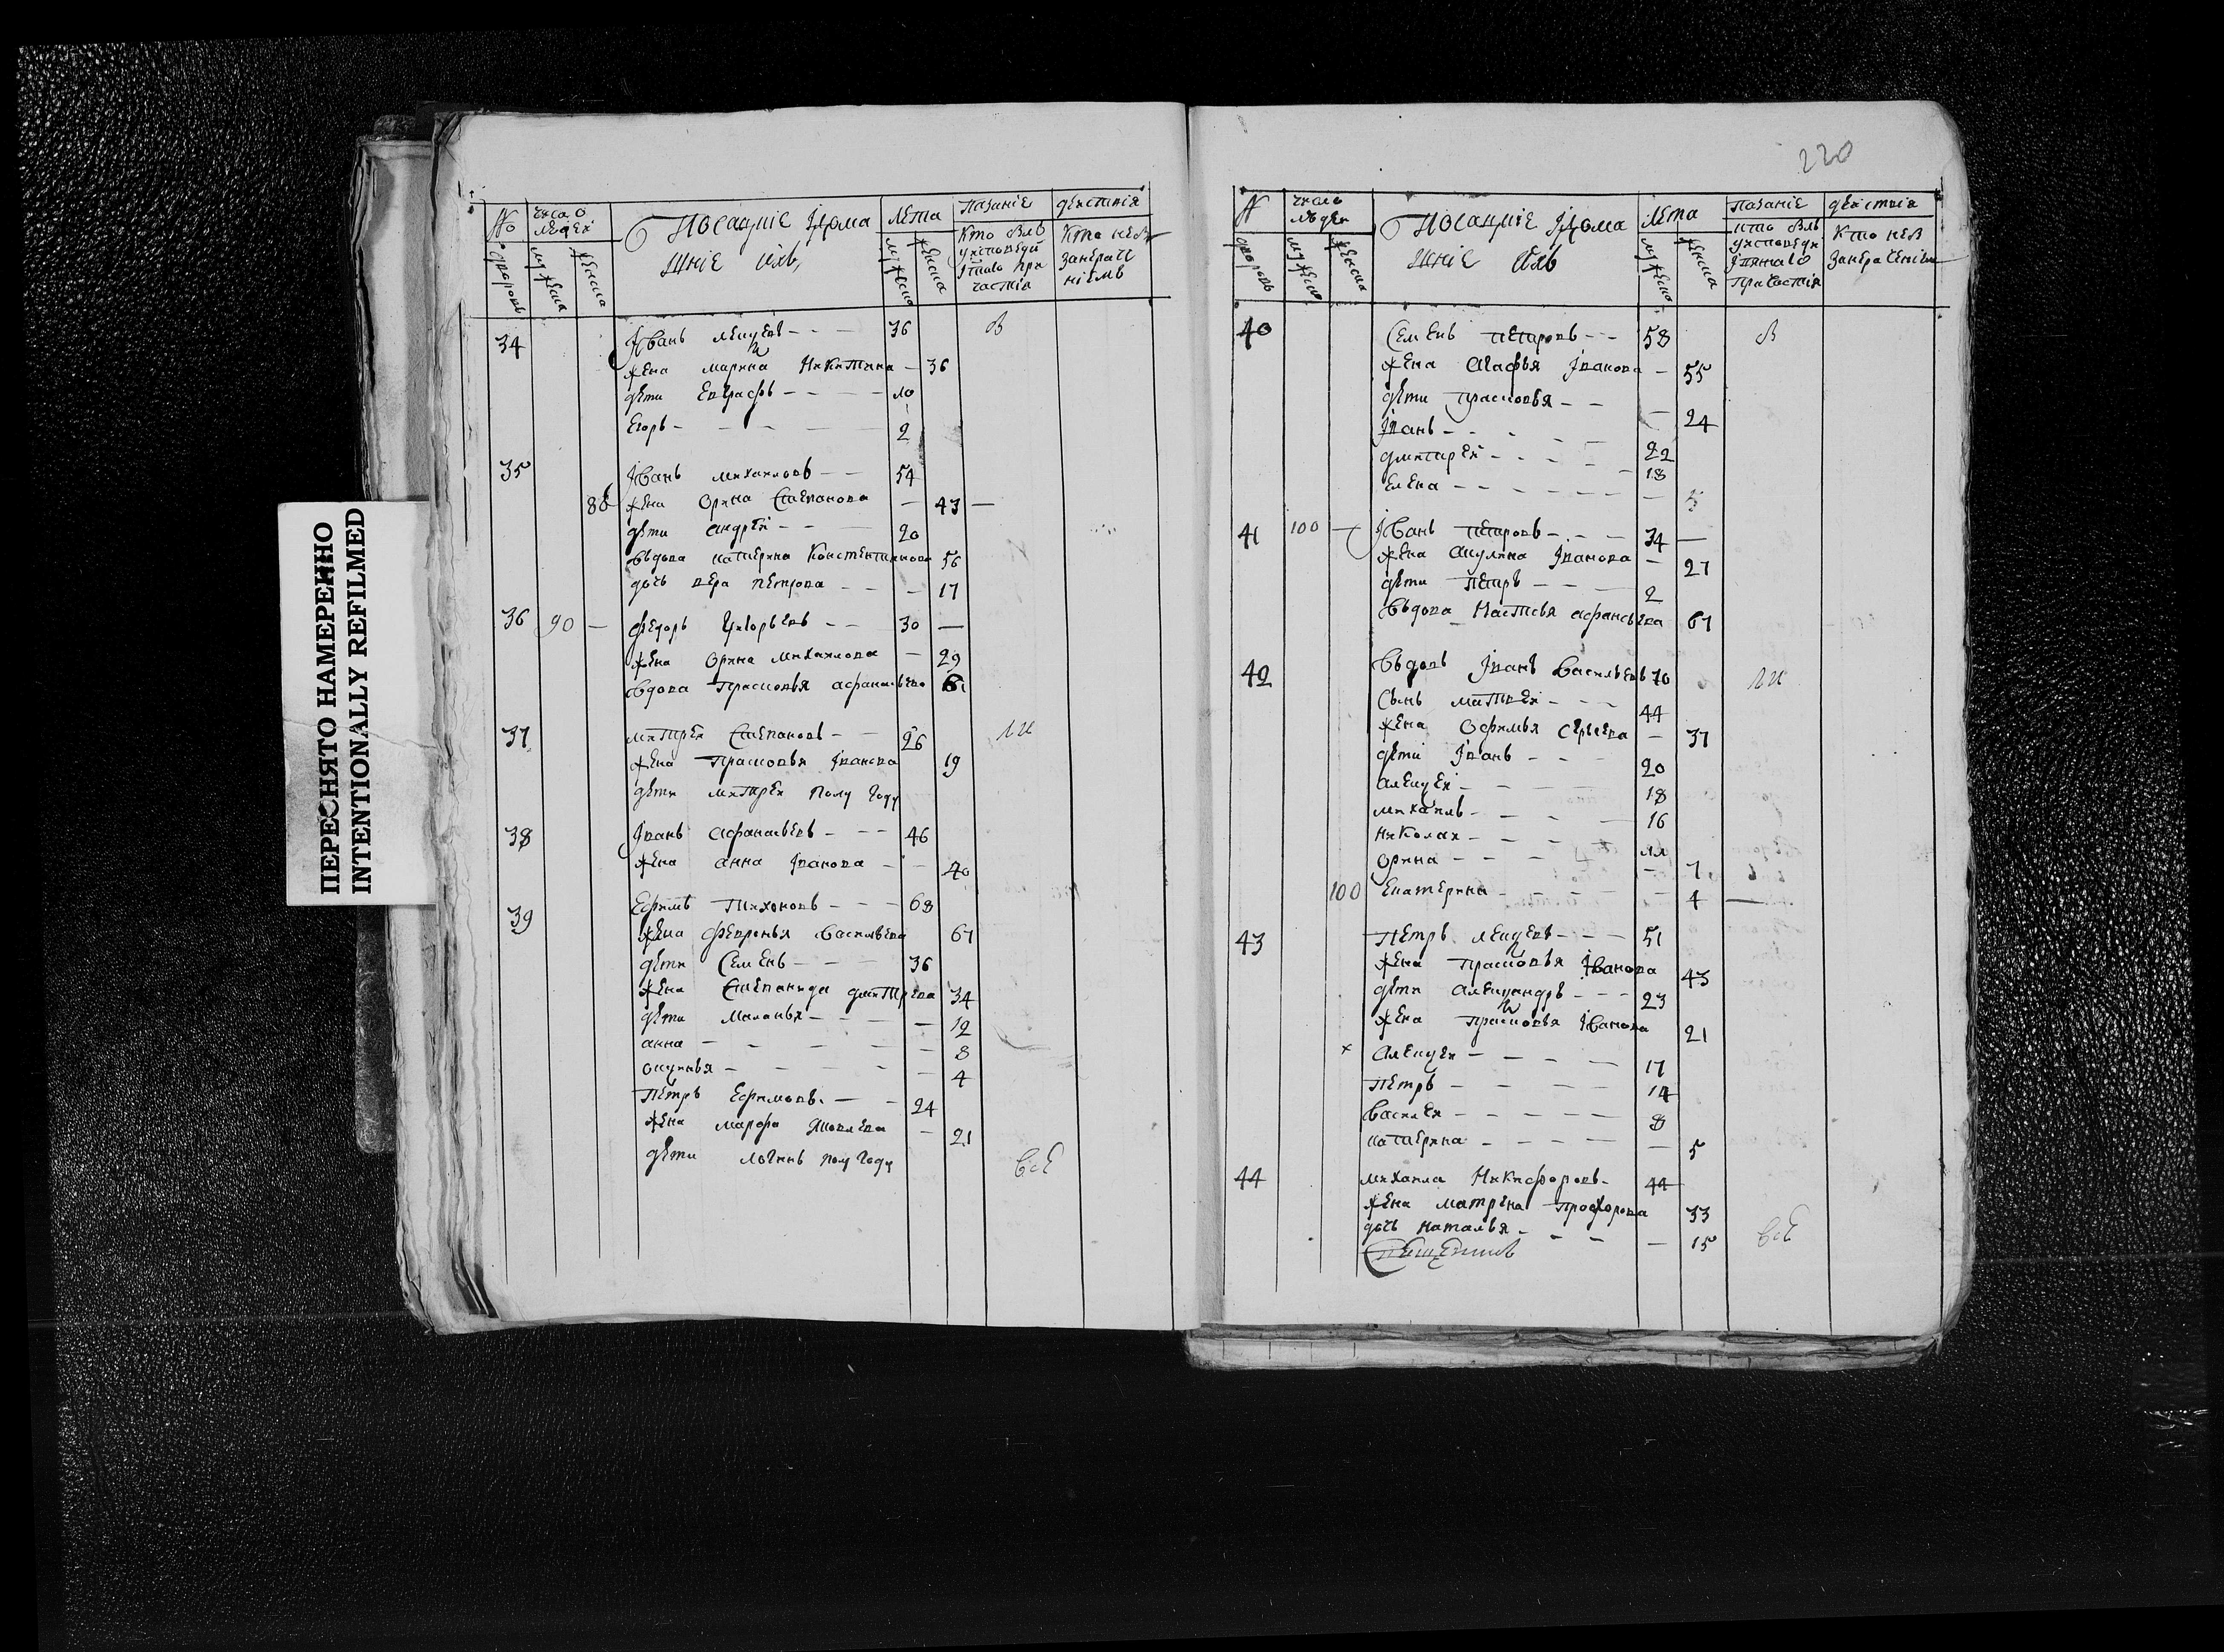 ПЕРЕСНЯТО НАМЕРЕННО
INTENTIONALLY REFILMED
№
число людей
Посацкие и дома
лета
дворовъ
мужеска
женска
шние ихъ
мужеска
женска
34 Иванъ 36 В
жена марина Никитина - 36
дети Евграфъ - - - - 10
Егоръ - - - - - 2
35 Iванъ михаиловъ - - 54
88 жена Орина Степанова - 43 -
дети андрей - - - 20
вдова катерина Констентинова 56
дочь вера петрова - - - 17
36 90 - федоръ Григорьевъ - - 30 -
жена Орина михаилова - 29
вдова Прасковья афанасьева
37 митрей Степановъ - - 26
жена Прасковья Iванова 19
дети митрей полу году
38 Iванъ афанасьевъ - - - 46
жена анна Iванова - - 40
39 Ефимъ Тихоновъ - - - 68
жена февронья васильева 67
дети Семенъ - - - 36
жена Степанида дмитрева 34
дети маланья - - - - 12
анна - - - - - - 8
окулина - - - - - - 4
Петръ Ефимовъ - - 24
жена марфа Яковлева - 21
дети логинъ полу году
всѣ
220
N
число людей
Посацкие и дома
лета
показание
действия
дворовъ
мужеска
женска
шние ихъ
мужеска
женска
40 Семенъ петровъ - - - 58 В
жена агафья Iванова - 55
дети прасковья - - - 24
Iванъ - - - - - 22
дмитрей - - - - - 18
Елена - - - - - - - 5
41 100 - Iванъ петровъ - - - - 34 -
жена акулина Iванова - 27
дети Петръ - - - 2
вдова Настасья афанасьева 67
42 вдовъ Iванъ васильевъ 70
сынъ матвей - - - 44
жена Офимья Сергеева - 37
дети Iванъ - - - 20
алексей - - - - 18
михаилъ - - - - 16
николай - - - - 11
орина - - - - - 7
100 Екатерина - - - - - 4 -
43 Петръ - - - 51
жена прасковья Iванова 43
дети александръ - - - 23
жена прасковья Iванова 21
× алексей - - - - 17
Петръ - - - - 14
василей - - - - - 8
катерина - - - - - 5
44 михаила Никифоровъ - 44
жена матрена прохорова 33
дочь наталья - - - - 15 всѣ